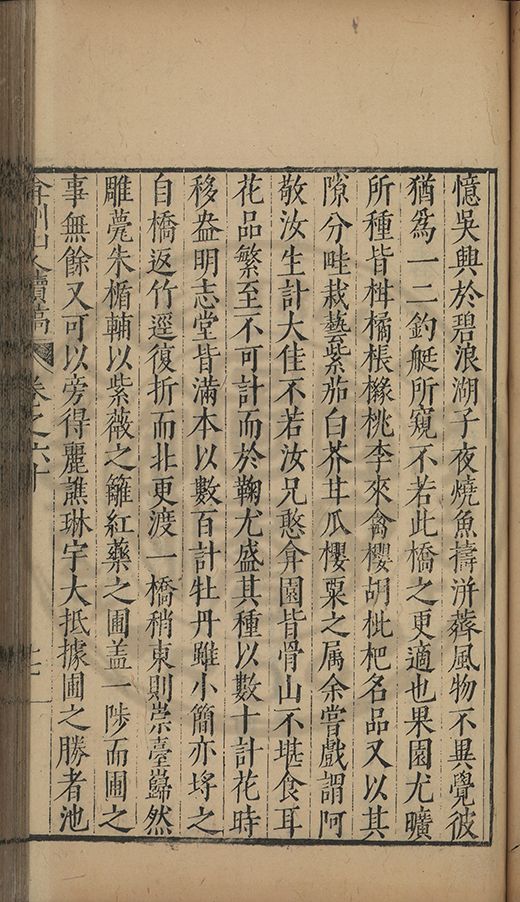 憶吳興於碧浪湖子夜燒魚擣洴薢風物不異覺彼
猶為一二釣艇所窺不若此橋之更適也果園尤曠
所種皆柑橘棖櫞桃李來禽櫻胡枇杷名品又以其
隙分畦栽藝紫茄白芥甘瓜櫻粟之属余嘗戲謂阿
敬汝生計大佳不若汝兄憨弇園皆骨山不堪食耳
花品繁至不可計而於鞠尤盛其種以數十計花時
移盎明志堂皆滿本以數百計牡丹雖小簡亦埒之
自橋返竹逕復折而北更渡一橋稍東則崇臺巋然
雕甍朱楯輔以紫薇之籬紅藥之圃盖一陟而圃之
事無餘又可以旁得麗譙琳宇大抵據圃之勝者池
弇州山人續稿 卷之六十